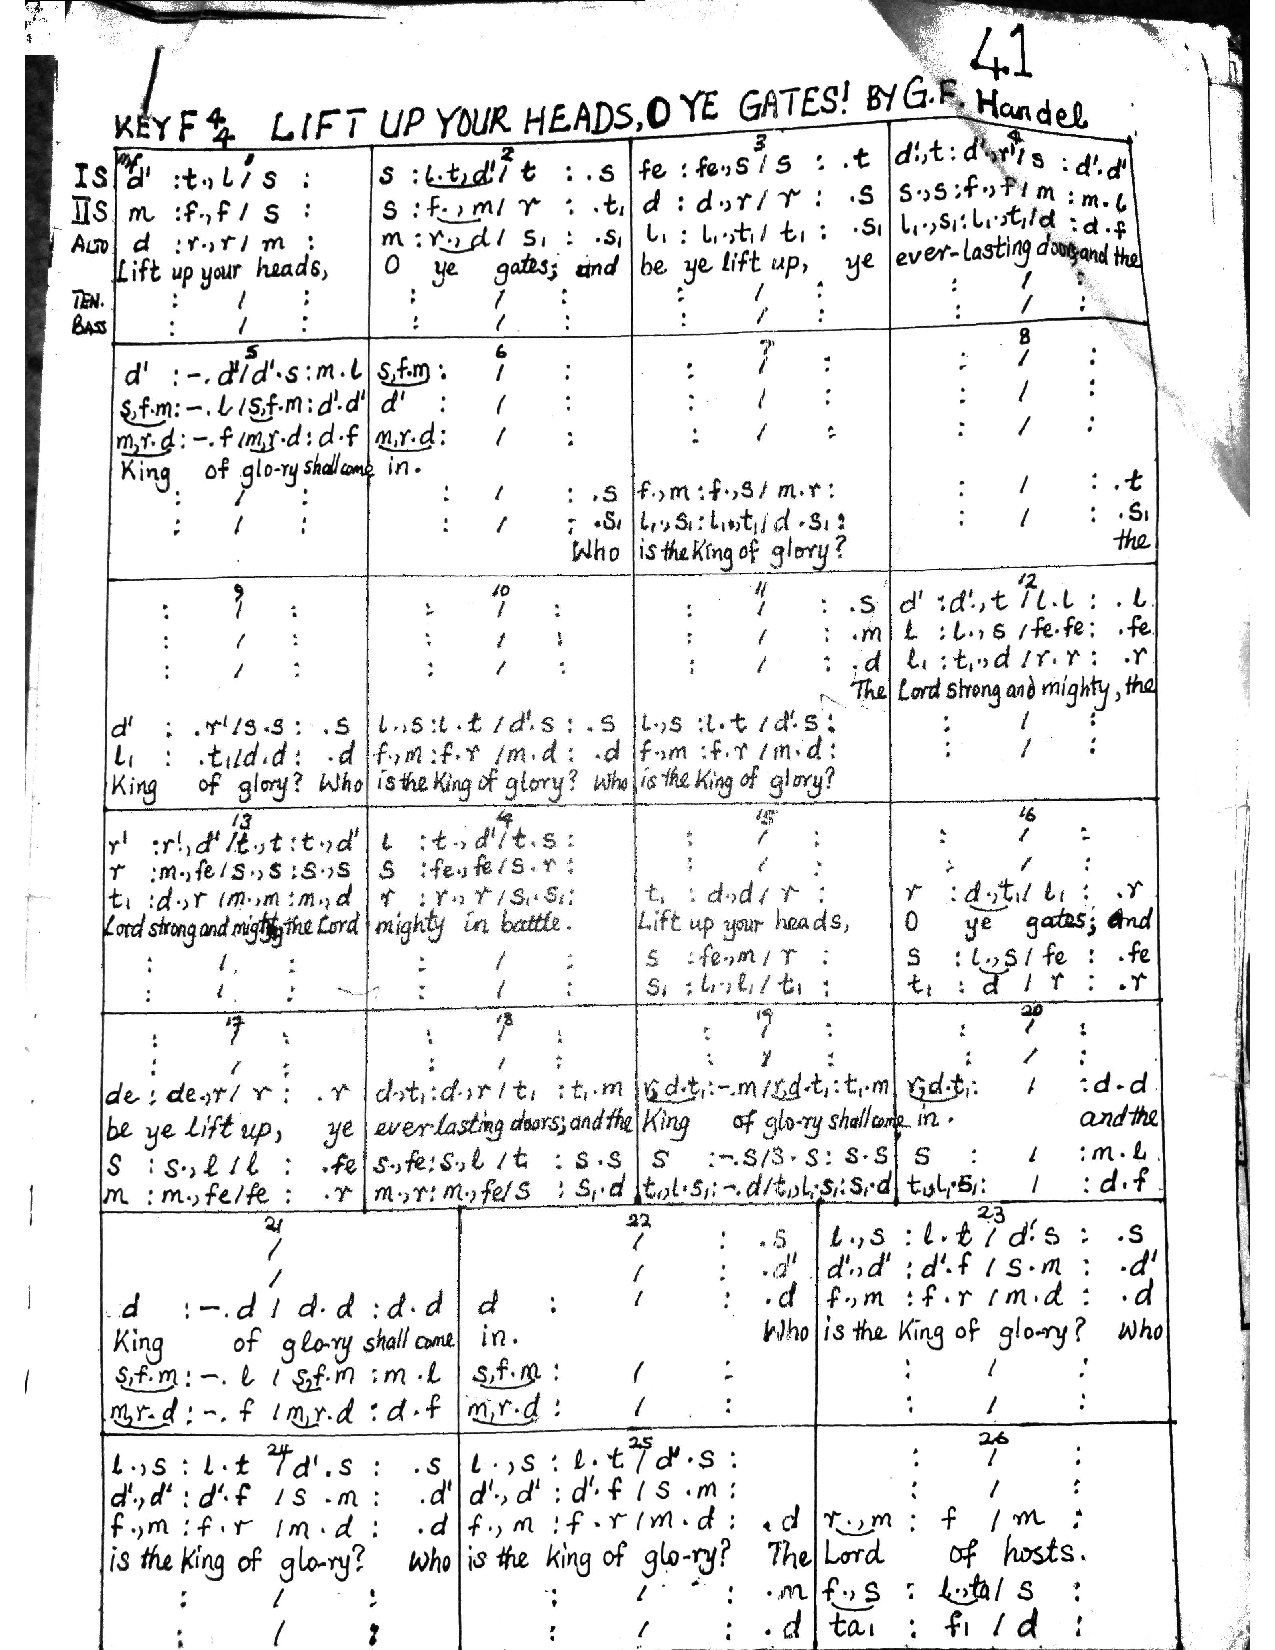 41
KEY F 4/4 LIFT UP YOUR HEADS, O YE GATES! BY G.F. Handel
1 2 3 4
IS mf d' :t.,l / s : | s :l.t,d' / t : .s | fe :fe.,s / s : .t | d'.,t:d'.,r' / s :d'.d'
IIS m :f.,f / s : | s :f.,m / r : .t₁ | d :d.,r / r : .s | s.,s:f.,f / m :m.l
ALTO d :r.,r / m : | m :r.,d / s₁ : .s₁ | l₁ :l₁.,t₁ / t₁ : .s₁ | l₁.,s₁:l₁.,t₁ / d :d.f
Lift up your heads, | O ye gates; and | be ye lift up, ye | ever-lasting doors, and the
TEN. : / : | : / : | : / : | : / :
BASS : / : | : / : | : / : | : / :
5 6 7 8
d' :-.d' / d'.s :m.l | s,f.m : / : | : / : | : / :
s,f.m:-.l / s,f.m:d'.d' | d' : / : | : / : | : / :
m,r.d:-.f / m,r.d:d.f | m,r.d: / : | : / : | : / :
King of glo-ry shall come | in.
: / : | : / : .s | f.,m :f.,s / m.r : | : / : .t
: / : | : / : .s₁ | l₁.,s₁:l₁.,t₁ / d .s₁ : | : / : .s₁
Who | is the King of glory? | the
9 10 11 12
: / : | : / : | : / : .s | d' :d'.,t / l.l : .l
: / : | : / : | : / : .m | l :l.,s / fe.fe : .fe
: / : | : / : | : / : .d | l₁ :t₁.,d / r.r : .r
The | Lord strong and mighty, the
d' : .r' / s.s : .s | l.,s:l.t / d'.s : .s | l.,s :l.t / d'.s : | : / :
l₁ : .t₁ / d.d : .d | f.,m:f.r / m.d : .d | f.,m :f.r / m.d : | : / :
King of glory? Who | is the King of glory? Who | is the King of glory?
13 14 15 16
r' :r'.,d' / t.,t :t.,d' | l :t.,d' / t.s : | : / : | : / :
r :m.,fe / s.,s :s.,s | s :fe.,fe / s.r : | : / : | : / :
t₁ :d.,r / m.,m :m.,d | r :r.,r / s₁.s₁ : | t₁ :d.,d / r : | r :d.,t₁ / l₁ : .r
Lord strong and mighty, the Lord | mighty in battle. | Lift up your heads, | O ye gates; and
: / : | : / : | s :fe.,m / r : | s :l.,s / fe : .fe
: / : | : / : | s₁ :l₁.,l₁ / t₁ : | t₁ : d / r : .r
17 18 19 20
: / : | : / : | : / : | : / :
: / : | : / : | : / : | : / :
de :de.,r / r : .r | d.,t₁:d.,r / t₁ :t₁.m | r,d.t₁:-.m / r,d.t₁:t₁.m | r,d.t₁: / :d.d
be ye lift up, ye | ever-lasting doors; and the | King of glo-ry shall come | in. and the
s :s.,l / l : .fe | s.,fe:s.,l / t :s.s | s :-.s / s.s :s.s | s : / :m.l
m :m.,fe / fe : .r | m.,r:m.,fe / s :s₁.d | t₁,l₁.s₁:-.d / t₁,l₁.s₁:s₁.d | t₁,l₁.s₁: / :d.f
21 22 23
/ | / : .s | l.,s :l.t / d'.s : .s
/ | / : .d' | d'.,d' :d'.f / s.m : .d'
d :-.d / d.d :d.d | d : / : .d | f.,m :f.r / m.d : .d
King of glo-ry shall come | in. Who | is the King of glo-ry? Who
s,f.m:-.l / s,f.m :m.l | s,f.m : / : | : / :
m,r.d:-.f / m,r.d :d.f | m,r.d : / : | : / :
24 25 26
l.,s :l.t / d'.s : .s | l.,s :l.t / d'.s : | : / :
d'.,d' :d'.f / s.m : .d' | d'.,d' :d'.f / s.m : | : / :
f.,m :f.r / m.d : .d | f.,m :f.r / m.d : .d | r.,m : f / m :
is the King of glo-ry? Who | is the king of glo-ry? The | Lord of hosts.
: / : | : / : .m | f.,s :l.,ta / s :
: / : | : / : .d | ta₁ : f₁ / d :